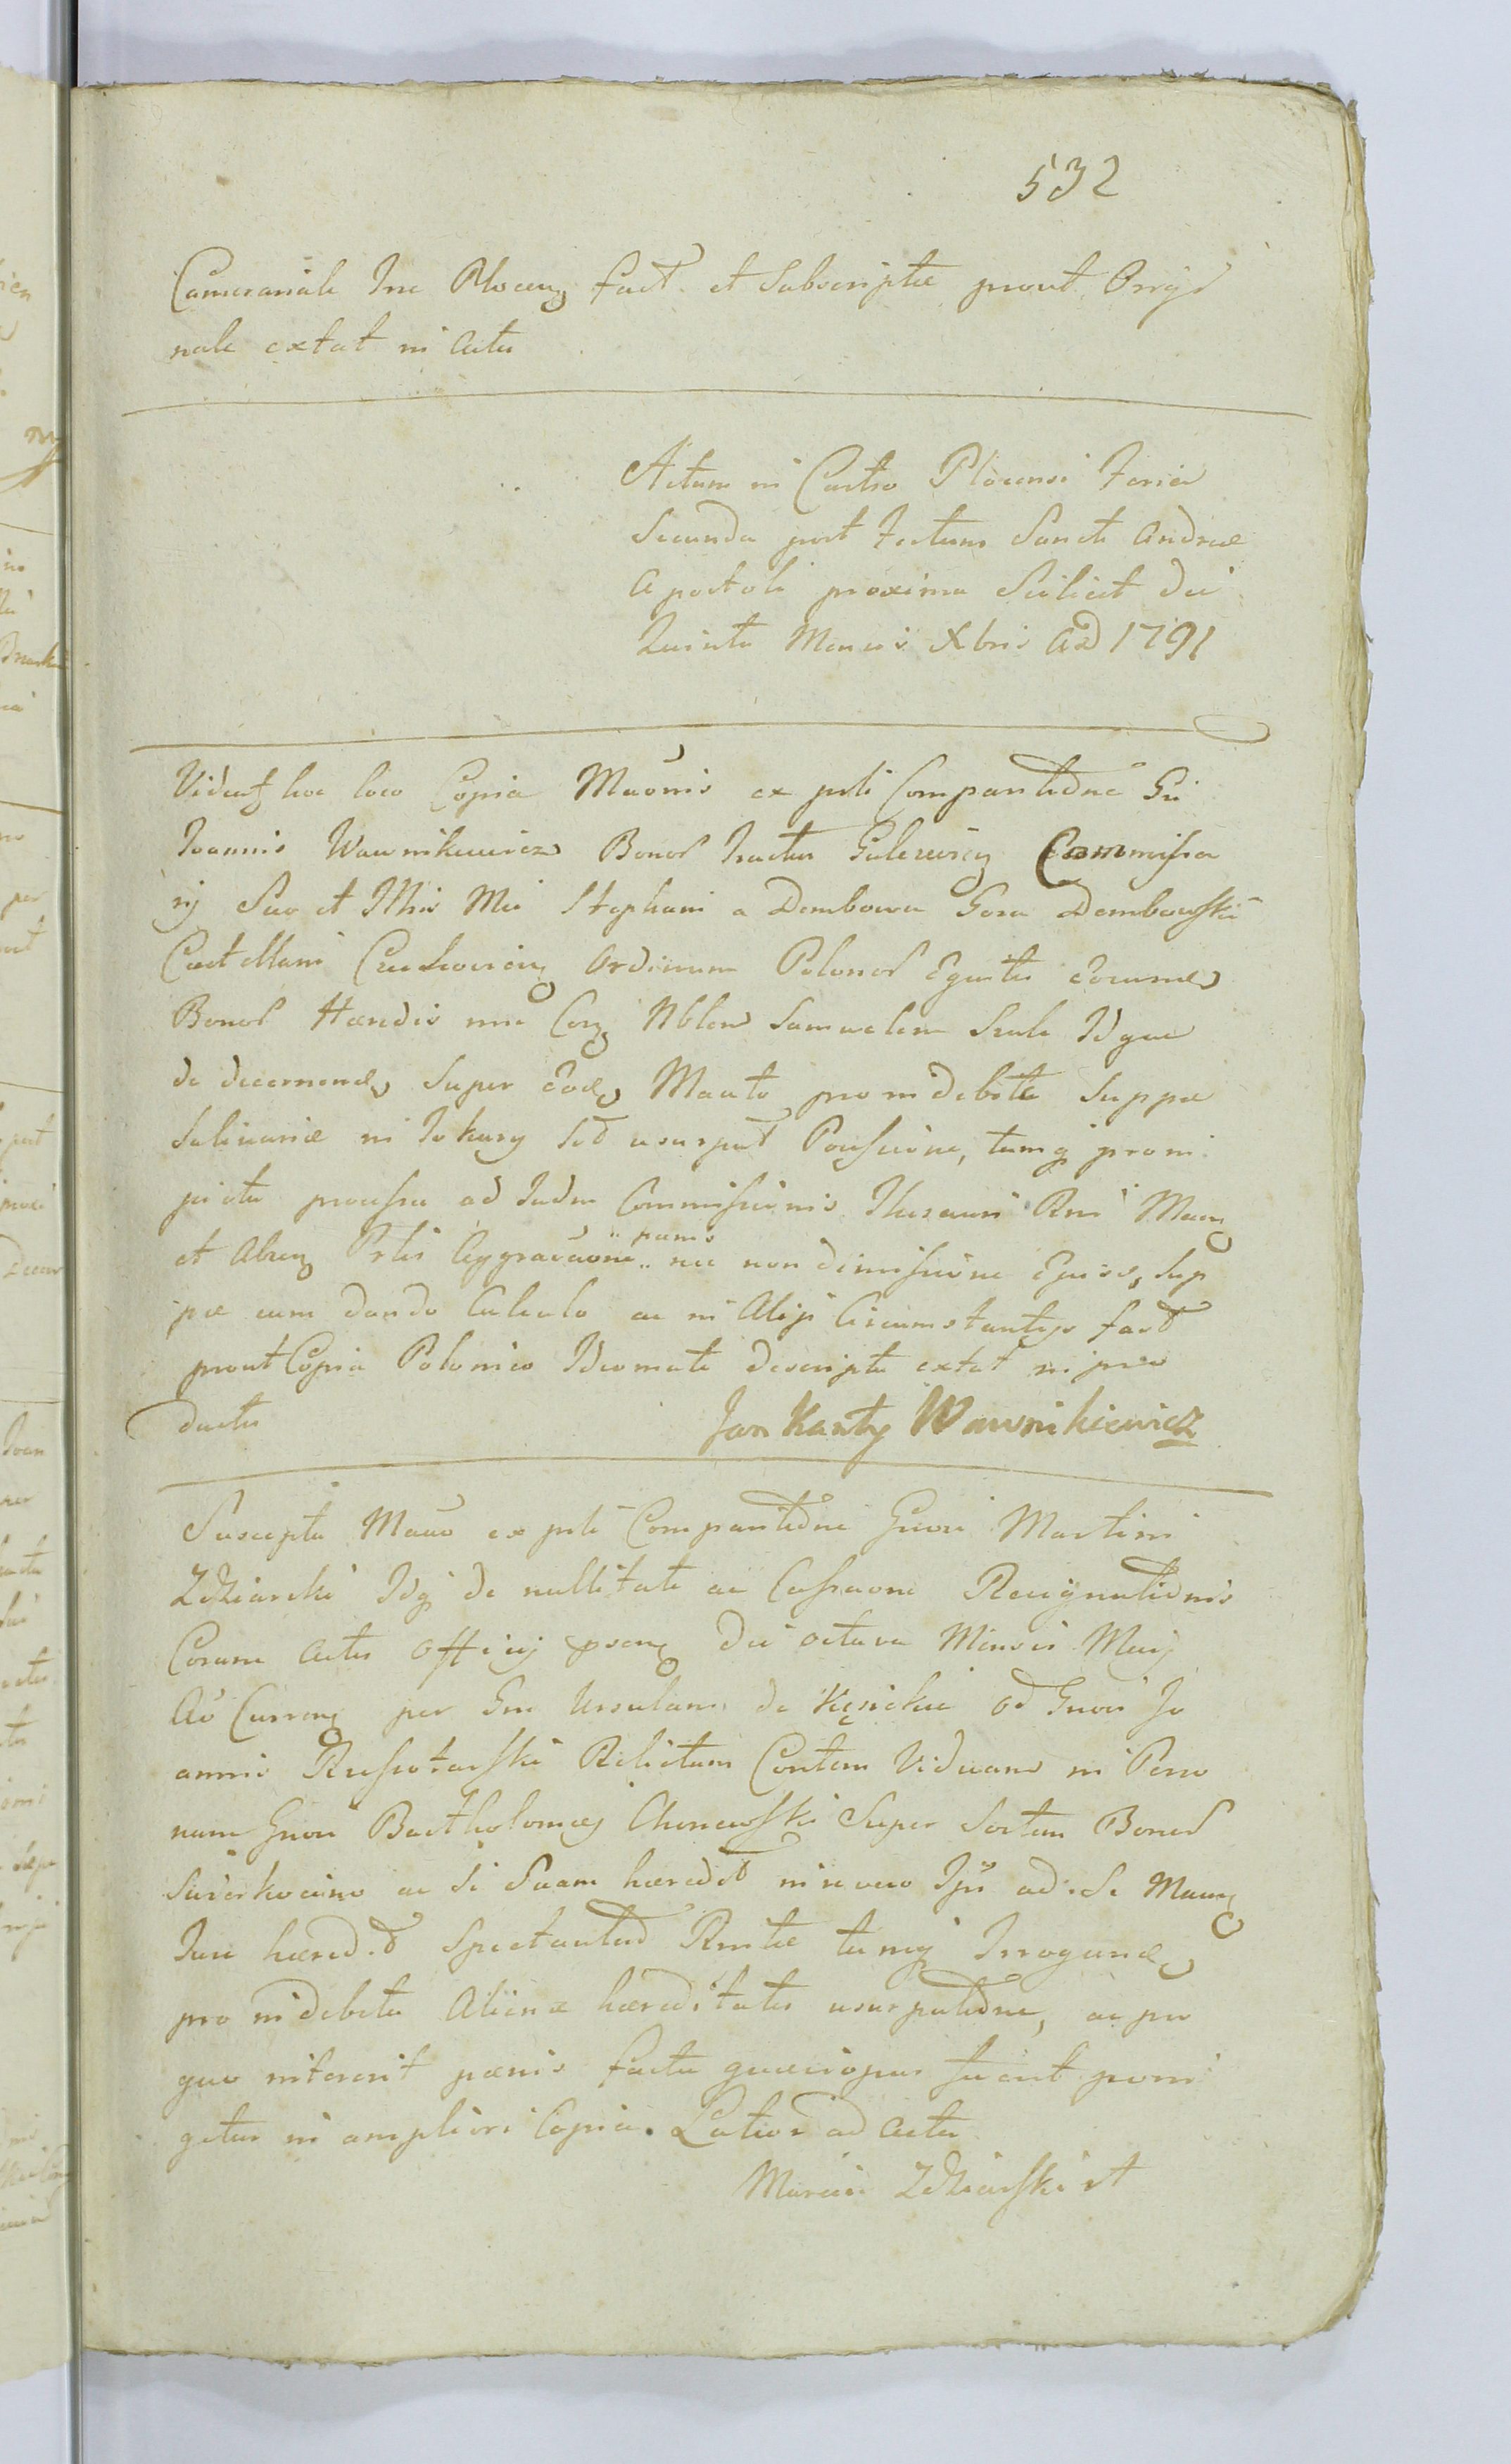 532
Cameraniale Tre Plocen fact. et Subscriptæ prout Origi
nale extat in Actu
Actum in Castro Plocensi Feria
Secunda post Festum Sancti Andreæ
Apostoli proxima Scilicet die
Quinta Mensis Xbris AD 1791
hoc loco Copia Maõnis ex psti Comparitiõne Gñi
Joannis Wawnikiewicz Bonor Tractus Commissa
rij Suo et Illtris Mci Stephani a Dembowa Gora Dembowski
Castellani Czechovien Ordinum Polonor Equitis
Bonor Hæredis nne Con Nblem Samuelem Szule Idque
de decernend Super Eod Maato pro indebite Suppæ
Salinariæ in Tokary sed usurpat Possessione, tumq pro in
jecta processu ad Judm Commissionis Thesauri Rni Maõn
et Alien Prlis Aggravãone pœnis nec non dimissione Ejusd Sup
pæ cum dando Calculo ac in Alijs Circumstantijs fact
prout Copia Polonico Idiomate descripta extat in pro
ductu
Jan Kanty Wawnikiewicz
Suscepta Maõo ex psti Comparitiõne Gnosi Martini
Zdziarski Idq de nullitate ac Cassaone Recignatiõnis
Coram Actis Officij psen die octava Mensis Maij
Ao Curren per Gm Ursulam de Kęsickie od Gnosi Jo
annis Russotarski Relictam Contem Viduam in Perso
nam Gnosi Bartholomæj Chonewski Super Sortem Bonor
ac si Suam hæredit in re vero Ipsi ad Se Maõn
Jure hæred. Spectantem tumq Irrogand
pro indebita Alienæ hæreditatis usurpatiõne, ac pro
quo intererit pœnis facta quæ si opus fuerit porri
getur in ampliori Copia. Lator ad Acta
Marcin Zdziarski